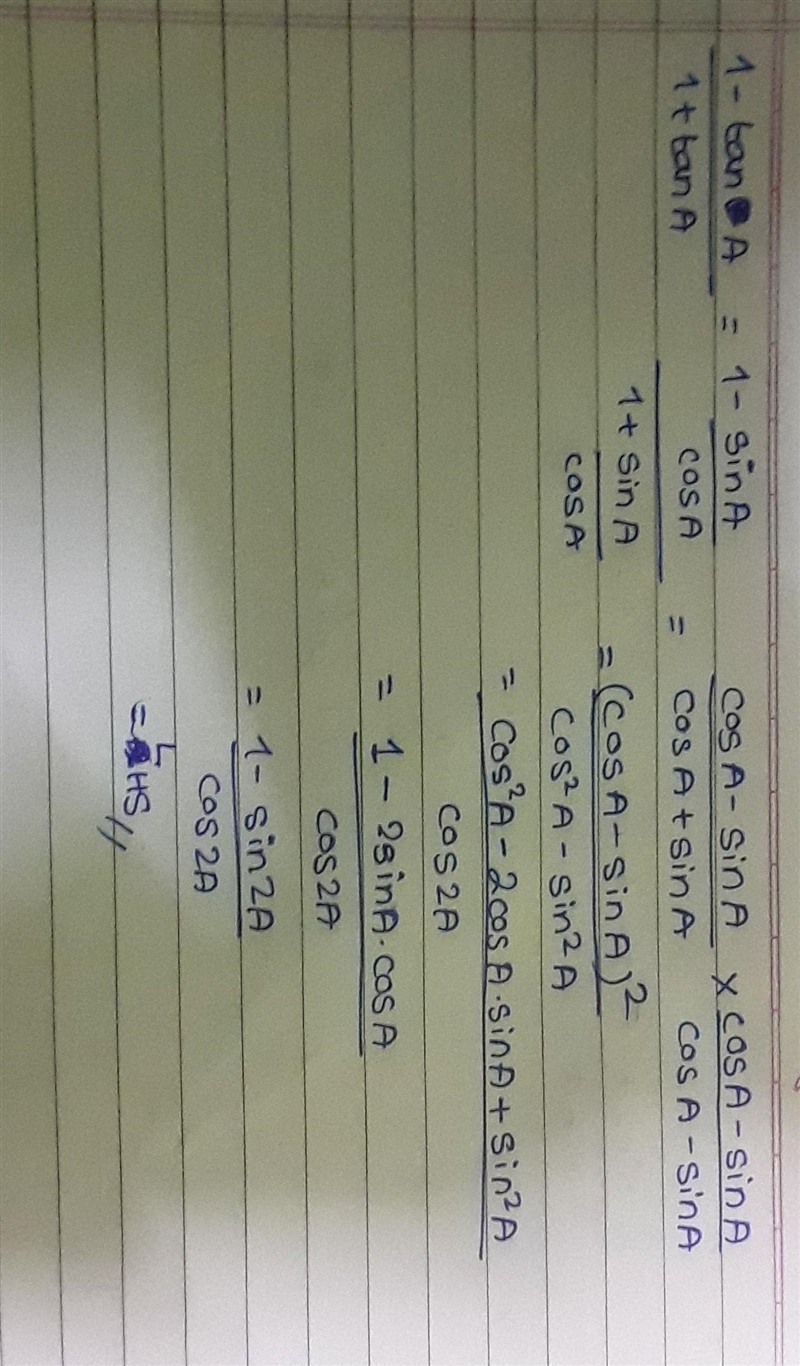 1 - tan A / 1 + tan A = 1 - sin A / cos A / 1 + sin A / cos A = cos A - sin A / cos A + sin A × cos A - sin A / cos A - sin A
= (cos A - sin A)² / cos² A - sin² A
= cos² A - 2cos A · sin A + sin² A / cos 2A
= 1 - 2sin A · cos A / cos 2A
= 1 - sin 2A / cos 2A
= LHS //